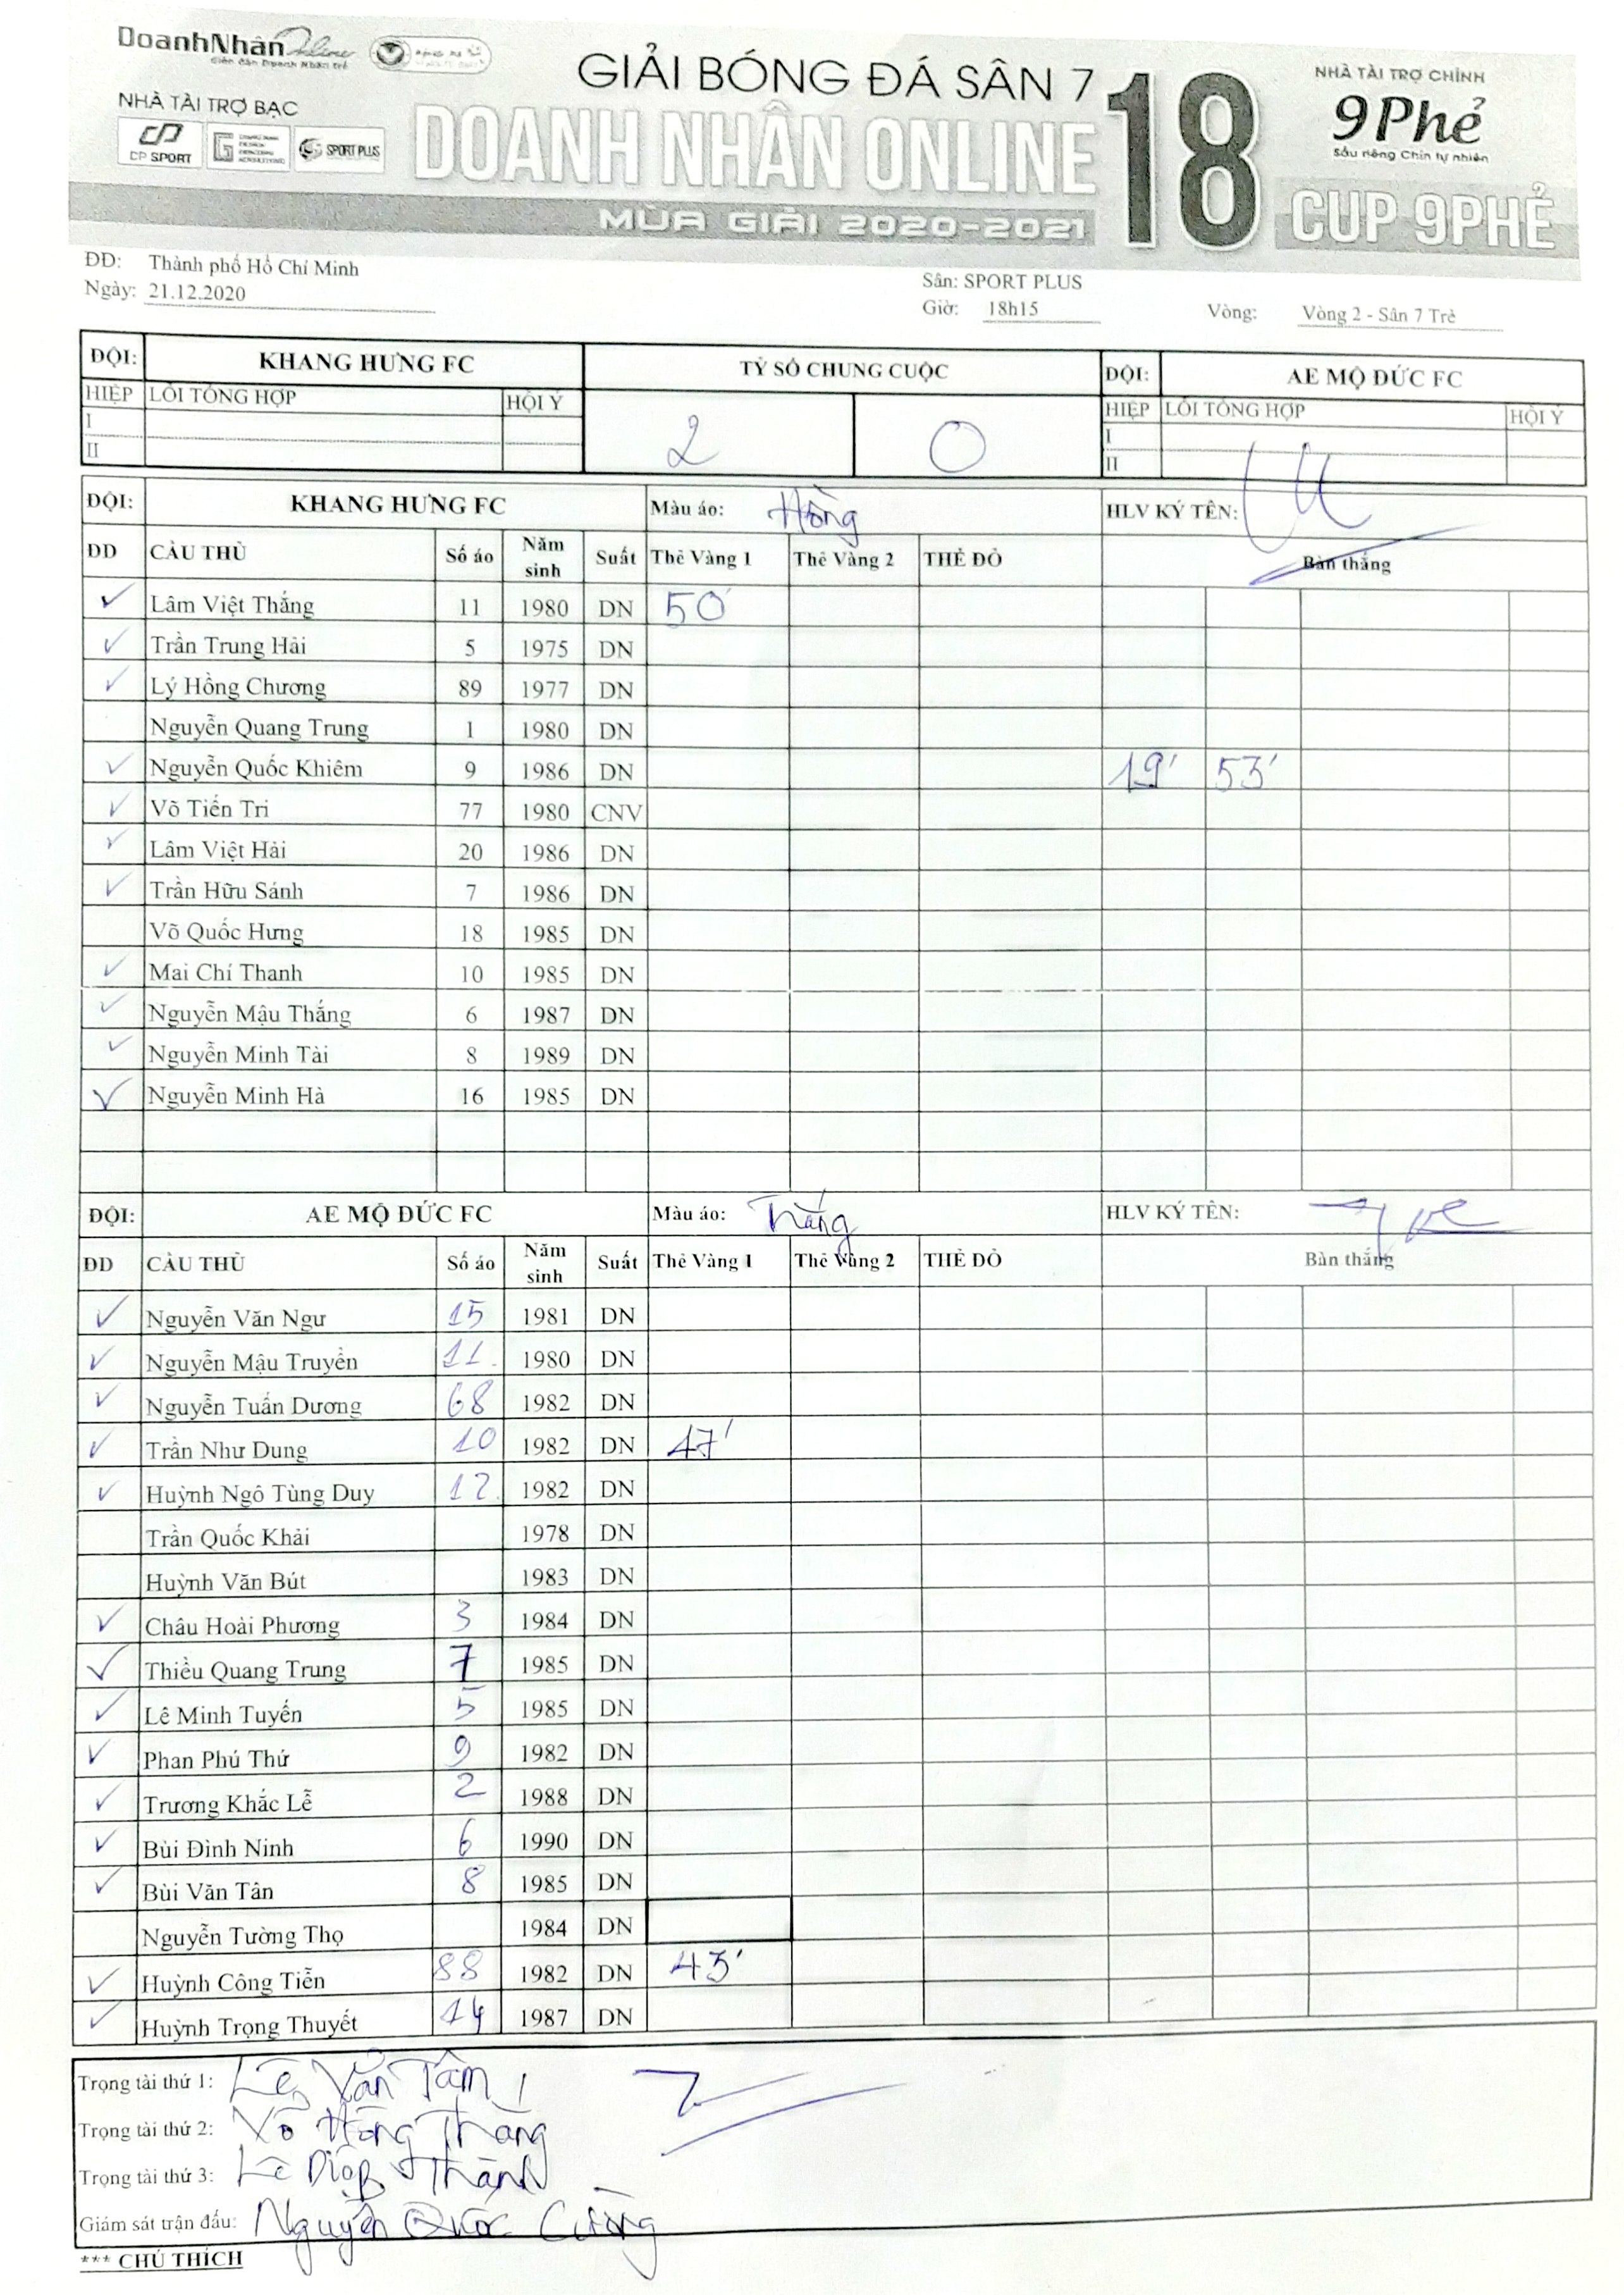 DoanhNhân Online
Diễn đàn Doanh Nhân trẻ
NHÀ TÀI TRỢ BẠC
CP SPORT
SPORT PLUS
GIẢI BÓNG ĐÁ SÂN 7
DOANH NHÂN ONLINE 18
MÙA GIẢI 2020-2021
NHÀ TÀI TRỢ CHÍNH
9Phẻ
Sầu riêng Chín tự nhiên
CUP 9PHẺ
ĐĐ: Thành phố Hồ Chí Minh
Ngày: 21.12.2020
Sân: SPORT PLUS
Giờ: 18h15 Vòng: Vòng 2 - Sân 7 Trẻ
ĐỘI: KHANG HƯNG FC TỶ SỐ CHUNG CUỘC ĐỘI: AE MỘ ĐỨC FC
HIỆP LỖI TỔNG HỢP HỘI Ý 2 0 HIỆP LỖI TỔNG HỢP HỘI Ý
I I
II II
ĐỘI: KHANG HƯNG FC Màu áo: Hồng HLV KÝ TÊN:
DD CẦU THỦ Số áo Năm sinh Suất Thẻ Vàng 1 Thẻ Vàng 2 THẺ ĐỎ Bàn thắng
✓ Lâm Việt Thắng 11 1980 DN 50'
✓ Trần Trung Hải 5 1975 DN
✓ Lý Hồng Chương 89 1977 DN
Nguyễn Quang Trung 1 1980 DN
✓ Nguyễn Quốc Khiêm 9 1986 DN 19' 53'
✓ Võ Tiến Tri 77 1980 CNV
✓ Lâm Việt Hải 20 1986 DN
✓ Trần Hữu Sánh 7 1986 DN
Võ Quốc Hưng 18 1985 DN
✓ Mai Chí Thanh 10 1985 DN
✓ Nguyễn Mậu Thắng 6 1987 DN
✓ Nguyễn Minh Tài 8 1989 DN
✓ Nguyễn Minh Hà 16 1985 DN
ĐỘI: AE MỘ ĐỨC FC Màu áo: Trắng HLV KÝ TÊN:
DD CẦU THỦ Số áo Năm sinh Suất Thẻ Vàng 1 Thẻ Vàng 2 THẺ ĐỎ Bàn thắng
✓ Nguyễn Văn Ngư 15 1981 DN
✓ Nguyễn Mậu Truyền 11 1980 DN
✓ Nguyễn Tuấn Dương 68 1982 DN
✓ Trần Như Dung 10 1982 DN 47'
✓ Huỳnh Ngô Tùng Duy 12 1982 DN
Trần Quốc Khải 1978 DN
Huỳnh Văn Bút 1983 DN
✓ Châu Hoài Phương 3 1984 DN
✓ Thiều Quang Trung 7 1985 DN
✓ Lê Minh Tuyến 5 1985 DN
✓ Phan Phú Thứ 9 1982 DN
✓ Trương Khắc Lễ 2 1988 DN
✓ Bùi Đình Ninh 6 1990 DN
✓ Bùi Văn Tân 8 1985 DN
Nguyễn Tường Thọ 1984 DN
✓ Huỳnh Công Tiễn 88 1982 DN 43'
✓ Huỳnh Trọng Thuyết 14 1987 DN
Trọng tài thứ 1: Lê Văn Tâm
Trọng tài thứ 2: Võ Hồng Thắng
Trọng tài thứ 3: Lê Diệp Thành
Giám sát trận đấu: Nguyễn Quốc Cường
*** CHÚ THÍCH